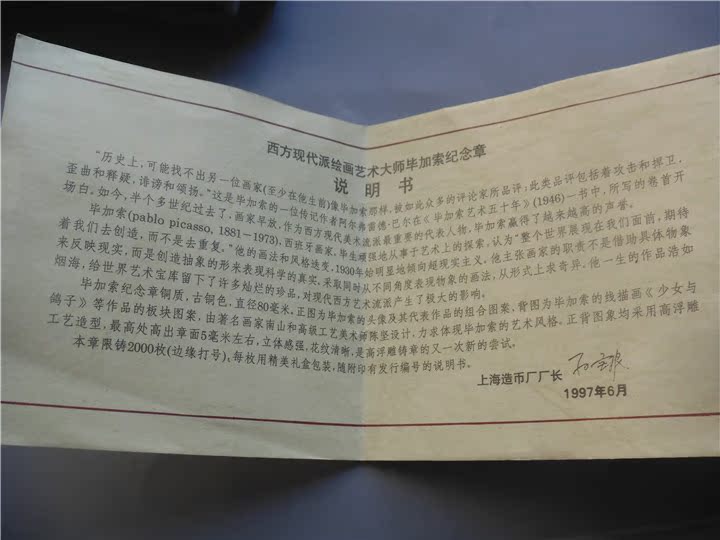 西方现代派绘画艺术大师毕加索纪念章
说明书
“历史上,可能找不出另一位画家(至少在他生前)像毕加索那样,被如此众多的评论家所品评;此类品评包括着攻击和捍卫,
歪曲和释疑,诽谤和颂扬。”这是毕加索的一位传记作者阿尔弗雷德·巴尔在《毕加索艺术五十年》(1946)一书中,所写的卷首开
场白。如今,半个多世纪过去了,画家早故,作为西方现代美术流派最重要的代表人物,毕加索赢得了越来越高的声誉。
毕加索(pablo picasso, 1881-1973),西班牙画家,毕生顽强地从事于艺术上的探索,认为“整个世界展现在我们面前,期待
着我们去创造,而不是去重复。”他的画法和风格迭变,1930年始明显地倾向超现实主义,他主张画家的职责不是借助具体物象
来反映现实,而是创造抽象的形来表现科学的真实,采取同时从不同角度表现物象的画法,从形式上求奇异。他一生的作品浩如
烟海,给世界艺术宝库留下了许多灿烂的珍品,对现代西方艺术流派产生了极大的影响。
毕加索纪念章铜质,古铜色,直径80毫米。正图为毕加索的头像及其代表作品的组合图案,背图为毕加索的线描画《少女与
鸽子》等作品的板块图案,由著名画家南山和高级工艺美术师陈坚设计,力求体现毕加索的艺术风格。正背图象均采用高浮雕
工艺造型,最高处高出章面5毫米左右,立体感强,花纹清晰,是高浮雕铸章的又一次新的尝试。
本章限铸2000枚(边缘打号),每枚用精美礼盒包装,随附印有发行编号的说明书。
上海造币厂厂长
1997年6月